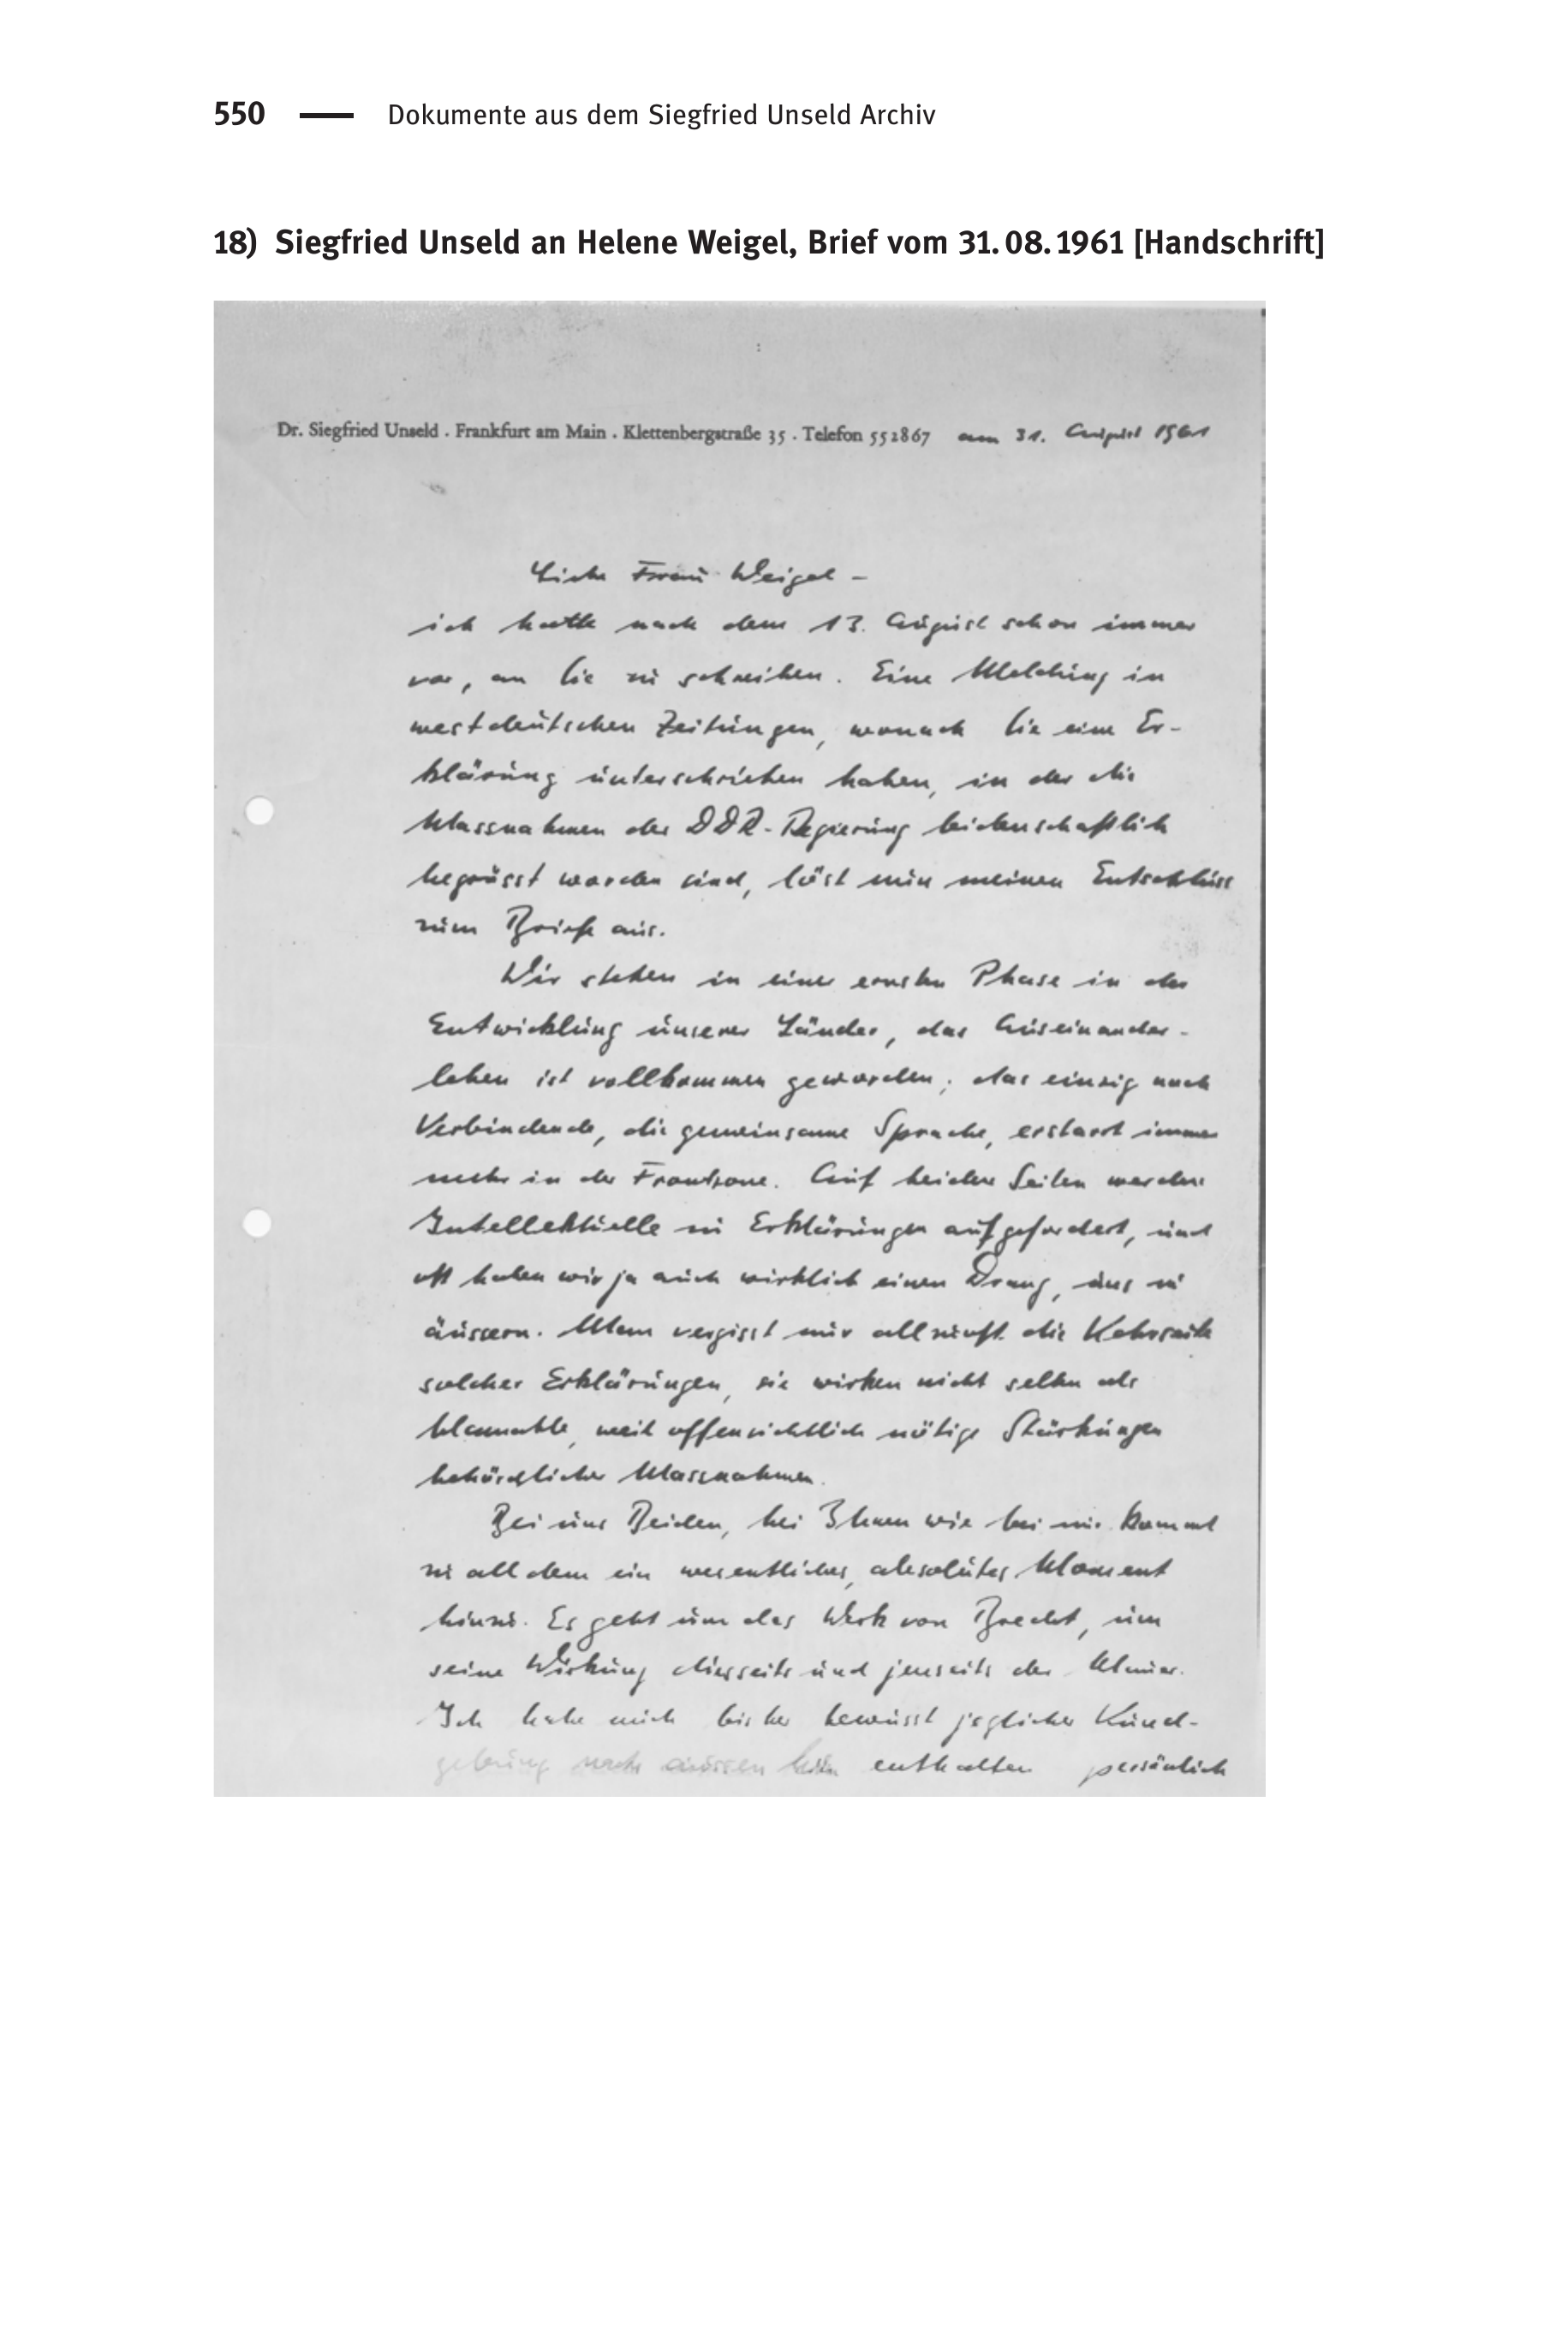 550 — Dokumente aus dem Siegfried Unseld Archiv
18) Siegfried Unseld an Helene Weigel, Brief vom 31.08.1961 [Handschrift]
Dr. Siegfried Unseld . Frankfurt am Main . Klettenbergstraße 35 . Telefon 552867 am 31. August 1961
Liebe Frau Weigel –
ich hatte nach dem 13. August schon immer
vor, an Sie zu schreiben. Eine Meldung in
westdeutschen Zeitungen, wonach Sie eine Er-
klärung unterschrieben haben, in der die
Massnahmen der DDR-Regierung leidenschaftlich
begrüsst worden sind, löst nun meinen Entschluss
zum Briefe aus.
Wir stehen in einer ernsten Phase in der
Entwicklung unserer Länder, das Auseinander-
leben ist vollkommen geworden; das einzig noch
Verbindende, die gemeinsame Sprache, erstarrt immer
mehr in der Frontzone. Auf beiden Seiten werden
Intellektuelle zu Erklärungen aufgefordert, und
oft haben wir ja auch wirklich einen Drang, uns zu
äussern. Man vergisst nur allzuoft die Kehrseite
solcher Erklärungen, sie wirken nicht selten als
blamable, weil offensichtlich nötige Stärkungen
behördlicher Massnahmen.
Bei uns Beiden, bei Ihnen wie bei mir kommt
zu all dem ein wesentliches, absolutes Moment
hinzu. Es geht um das Werk von Brecht, um
seine Wirkung diesseits und jenseits der Mauer.
Ich habe mich bisher bewusst jeglicher Kund-
gebung nach aussen hin enthalten persönlich